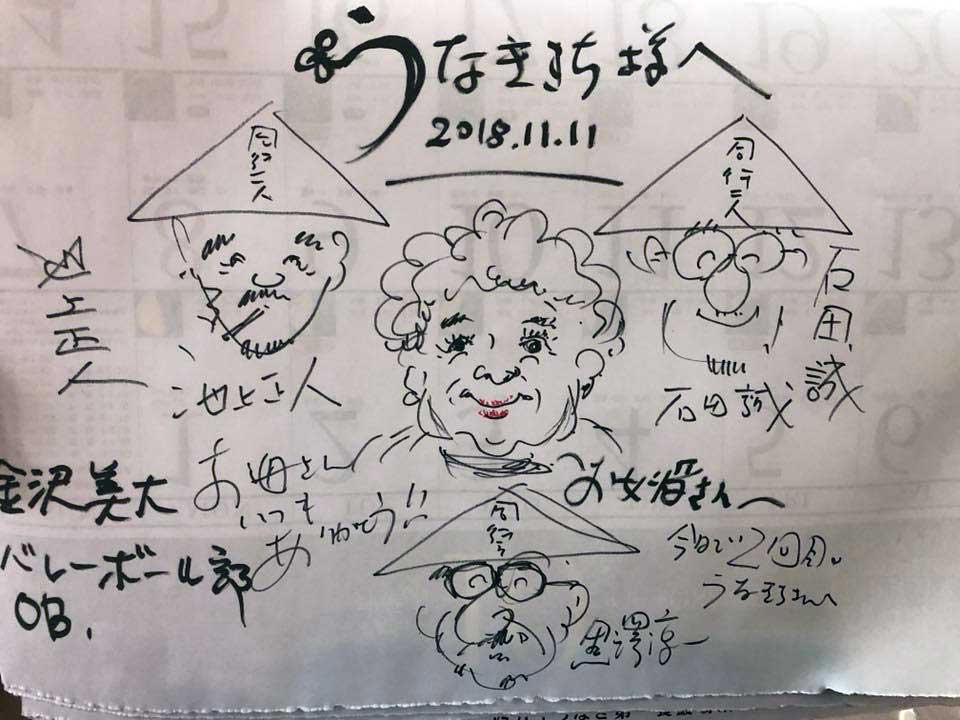 うなきち様へ
2018.11.11
同行二人
同行二人
上正人
池上正人
石田誠
石田誠
金沢美大
バレーボール部
OB.
お母さん
いつも
ありがとう!!
お女将さんへ
同行二
今日で2回目。
うなきちさんへ
黒澤淳一